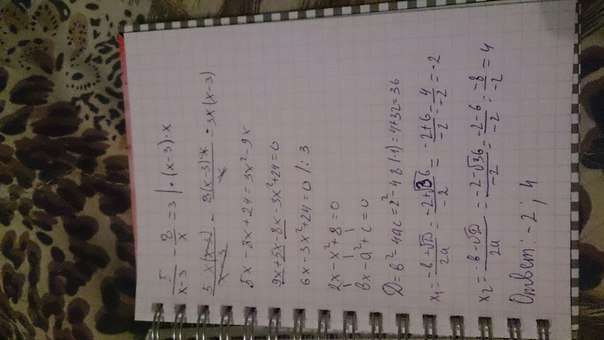 5/(x-3) - 8/x = 3 | · (x-3) · x
5·x(x-3)/(x-3) - 8(x-3)·x/x = 3x(x-3)
5x - 8x + 24 = 3x² - 9x
9x + 5x - 8x - 3x² + 24 = 0
6x - 3x² + 24 = 0 / : 3
2x - x² + 8 = 0
bx - a² + c = 0
D = b² - 4ac = 2² - 4·8·(-1) = 4 + 32 = 36
x₁ = (-b + √D)/2a = (-2 + √36)/-2 = (-2 + 6)/-2 = 4/-2 = -2
x₂ = (-b - √D)/2a = (-2 - √36)/-2 = (-2 - 6)/-2 = -8/-2 = 4
Ответ: -2 ; 4